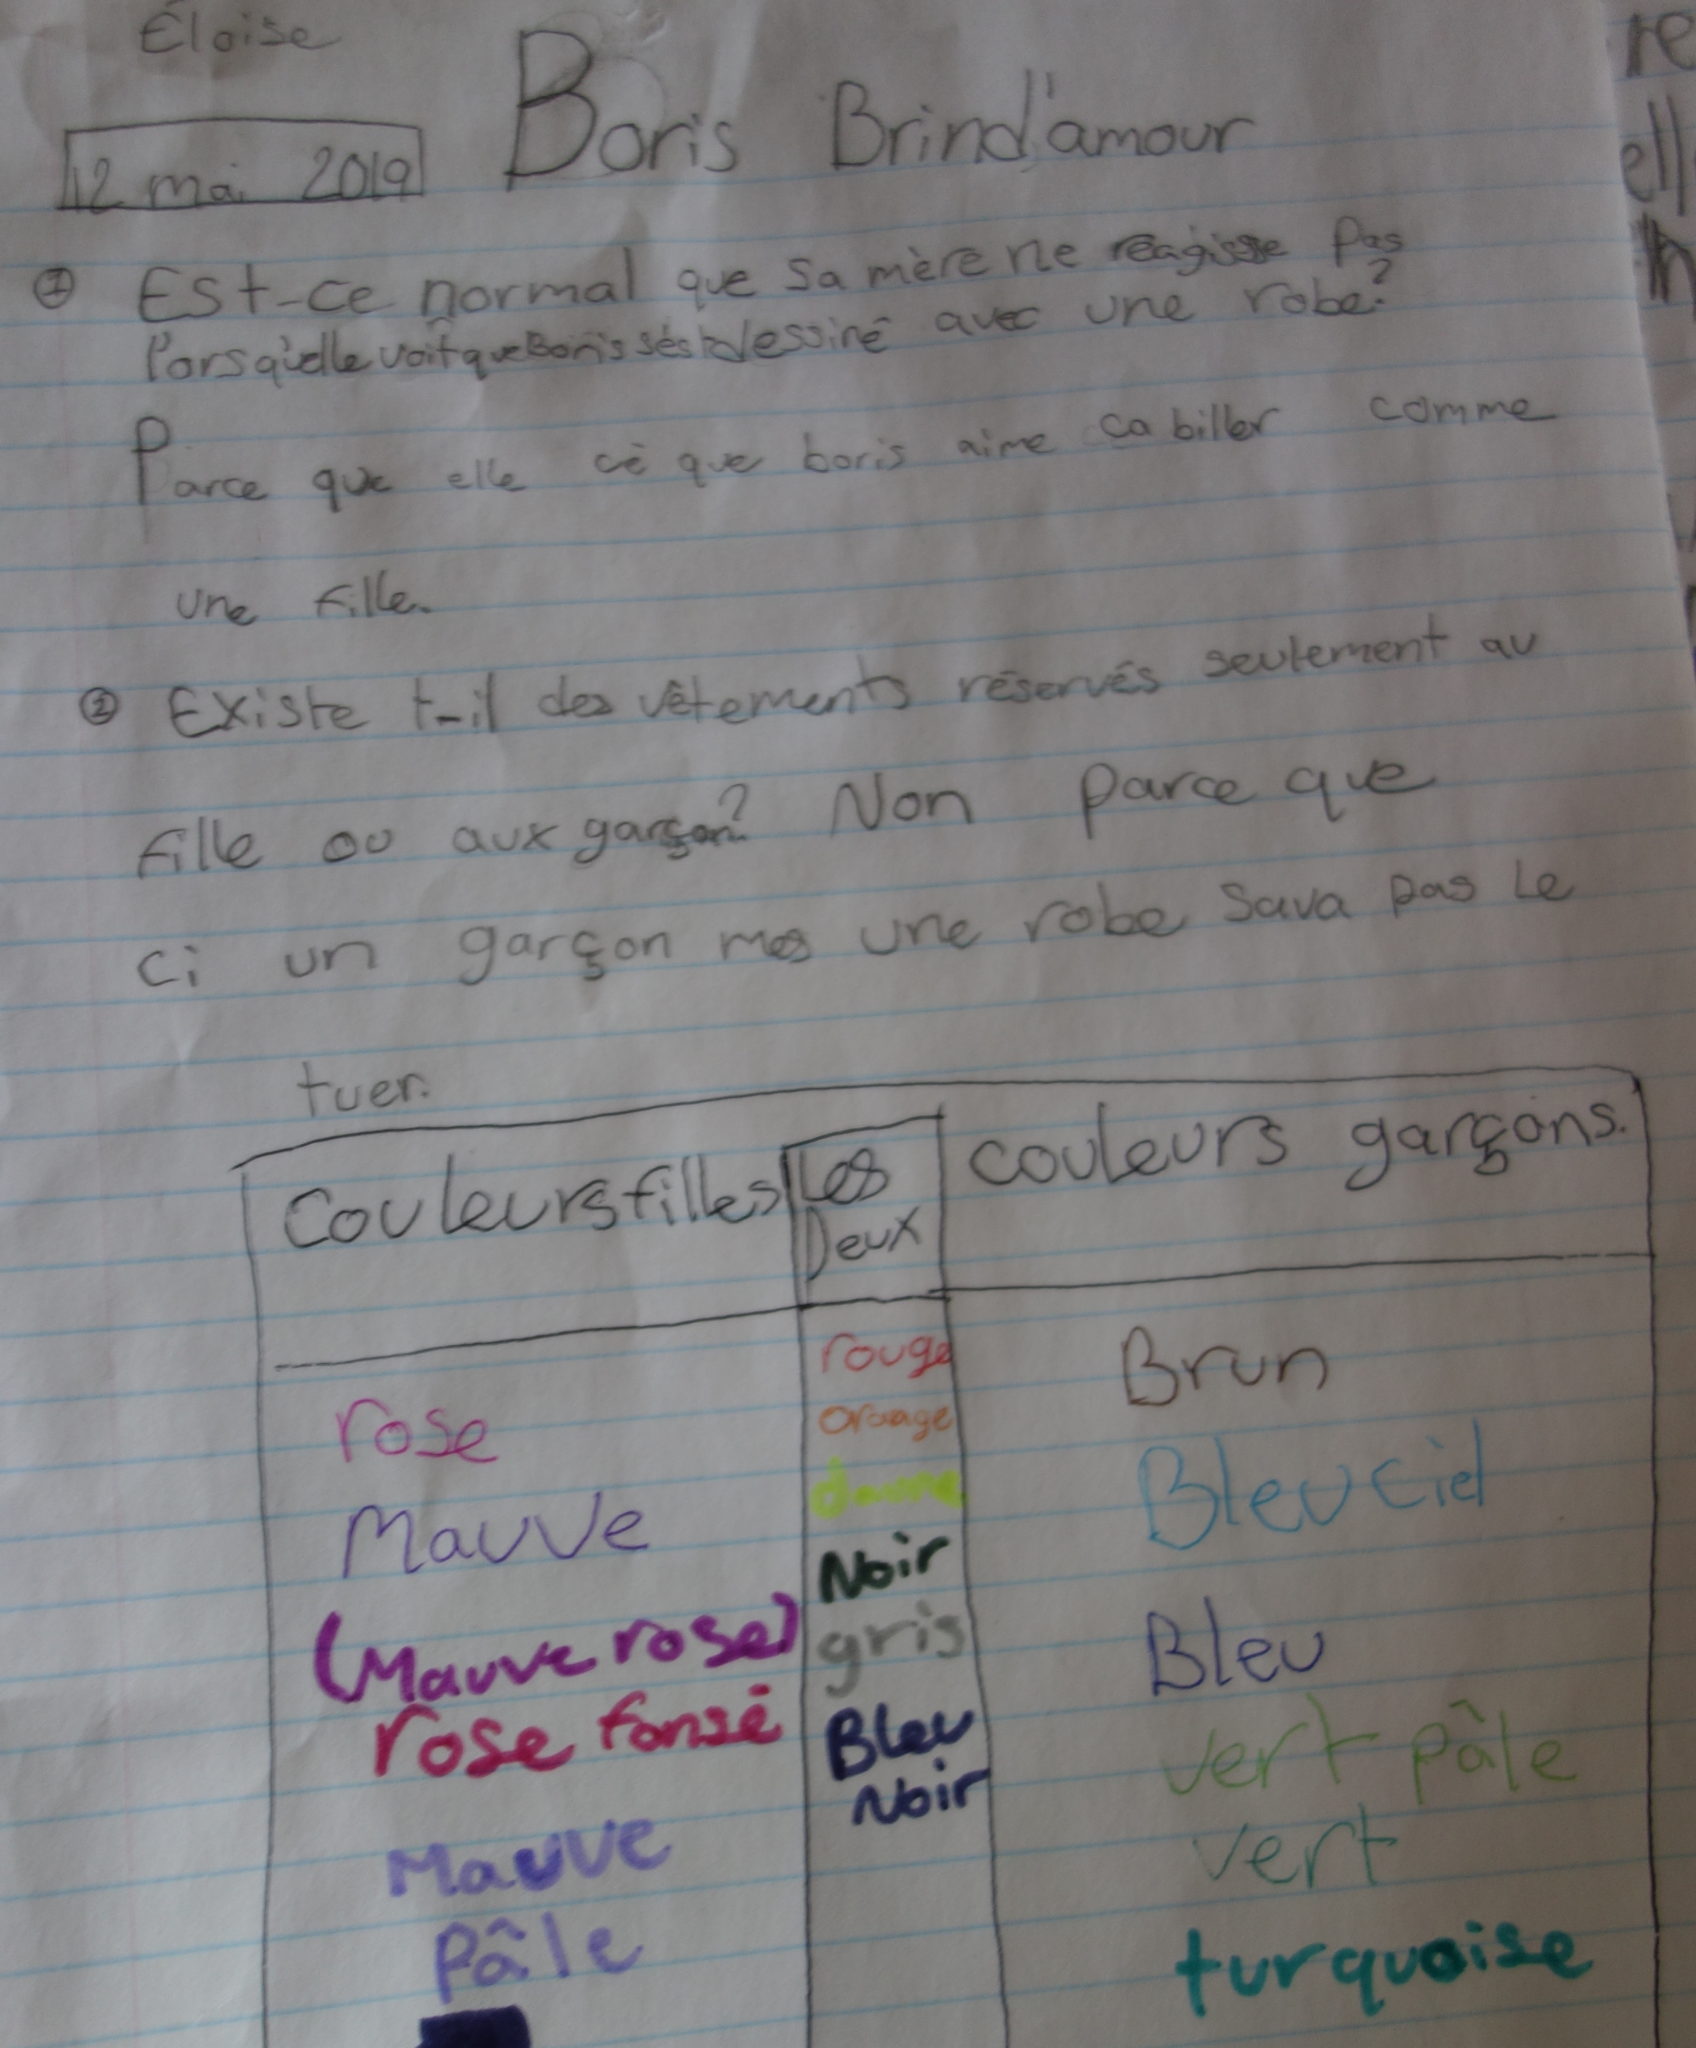 Éloïse
12 mai 2019
Boris Brind'amour
① Est-ce normal que sa mère ne réagisse pas
lorsqu'elle voit que Boris s'est dessiné avec une robe?
Parce que elle cé que boris aime ca biller comme
une fille.
② Existe t-il des vêtements réservés seulement au
fille ou aux garçon? Non parce que
ci un garçon mes une robe sava pas le
tuer.
Couleurs filles
Les
Deux
couleurs garçons.
rose
Mauve
(Mauve rose)
rose fonsé
Mauve
pâle
rouge
orange
Noir
gris
Bleu
Noir
Brun
Bleu ciel
Bleu
vert pâle
vert
turquoise